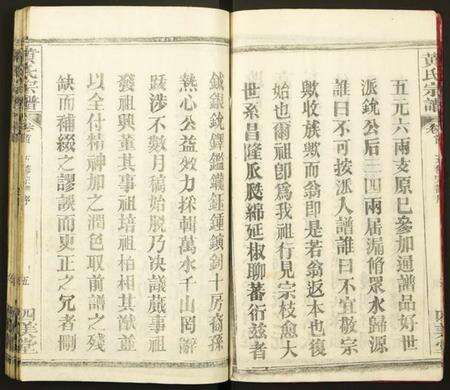 黃氏宗譜
五元六兩支原已參加通譜品好世
派銑公后三四兩届漏脩眾水歸源
誰曰不可按派人譜誰曰不宜敬宗
收族歟而翁即是若翁返本也復
始也爾祖卽爲我祖行見宗枝愈大
世系昌隆瓜瓞綿延椒聊蕃衍茲者
鉞銀銑鐸鑑鐵鉦鍾鎮釗十房裔孫
熱心公益效力採輯萬水千山罔辭
跋涉不數月稿始脫乃决議蕆事祖
發祖興董其事祖培祖柏相其猷並
以全付精神加之潤色取前譜之殘
缺而補綴之謬誤而更正之冗者刪
黃氏宗譜
卷首
五
四美堂